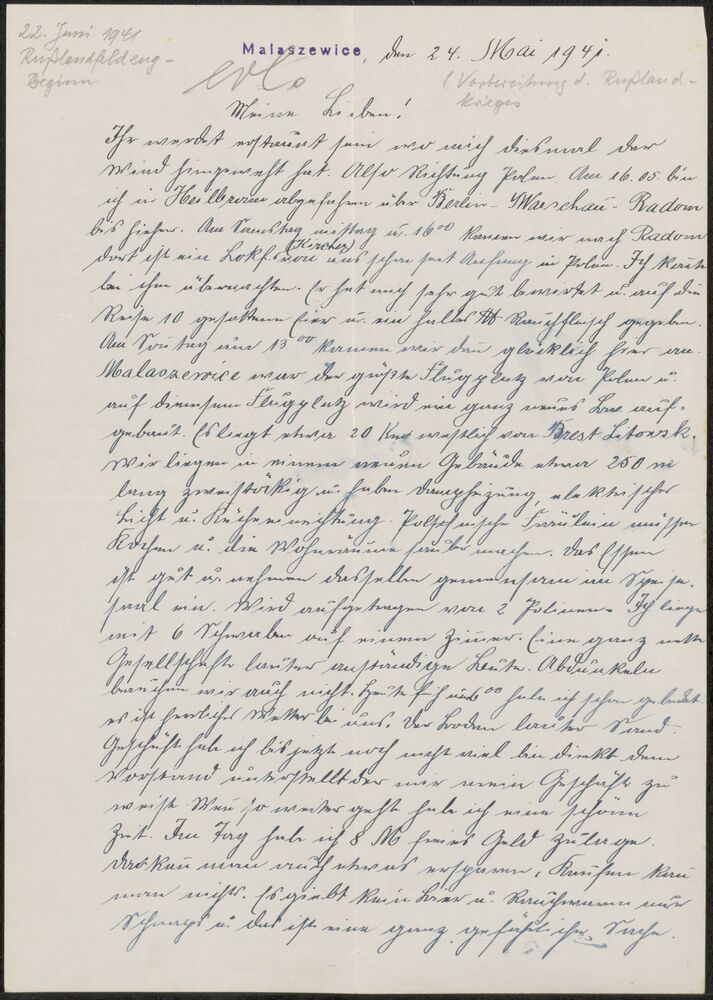 22. Juni 1941
Rußlandfeldzug-
Beginn
Malaszewice, den 24. Mai 1941.
(Vorbereitung d. Rußland-
krieges
Meine Lieben!
Ihr werdet erstaunt sein wo mich diesmal der
Wind hingeweht hat. Also Richtung Polen. Am 16.05. bin
ich in Heilbronn abgefahren über Berlin - Warschau - Radom
bis hieher. Am Samstag mittag u. 16⁰⁰ kamen wir nach Radom
dort ist ein Lokf. (Kircher) von uns schon seit Anfang in Polen. Ich konnte
bei ihm übernachten. Er hat mich sehr gut bewirtet u. auf die
Reise 10 gesottene Eier u. ein halbes ℔ Rauchfleisch gegeben.
Am Sonntag um 13⁰⁰ kamen wir dan glücklich hier an.
Malaszewice war der größte Flugplatz von Polen u.
auf diesem Flugplatz wird ein ganz neues Bw. auf-
gebaut. Es liegt etwa 20 Km westlich von Brest Litowsk.
Wir liegen in einem neuen Gebäude etwa 250 m
lang zweistöckig u. haben Dampfheizung, elektrisches
Licht u. Kücheneinrichtung. Polnische Fräulein müssen
Kochen u. die Wohnräume sauber machen. Das Essen
ist gut u. nehmen dasselbe gemeinsam im Speise-
saal ein. Wird aufgetragen von 2 Polinen. Ich liege
mit 6 Schwaben auf einem Zimer. Eine ganz nette
Gesellschaft lauter anständige Leute. Abdunkeln
brauchen wir auch nicht. Heute früh habe ich schon gebadet.
es ist herrliches Wetter bei uns. Der Boden lauter Sand.
Geschäft hab ich bis jetzt noch nicht viel bin direkt dem
Vorstand unterstellt der mir mein Geschäft zu
weist. Wen so weiter geht habe ich eine schöne
Zeit. Im Tag hab ich 8 M freies Geld Zulage.
Da kan man auch etwas ersparen, Kaufen kan
man nichts. Es giebt kein Bier u. Rauchwaren nur
Schnaps u. das ist eine ganz gefährliche Sache.